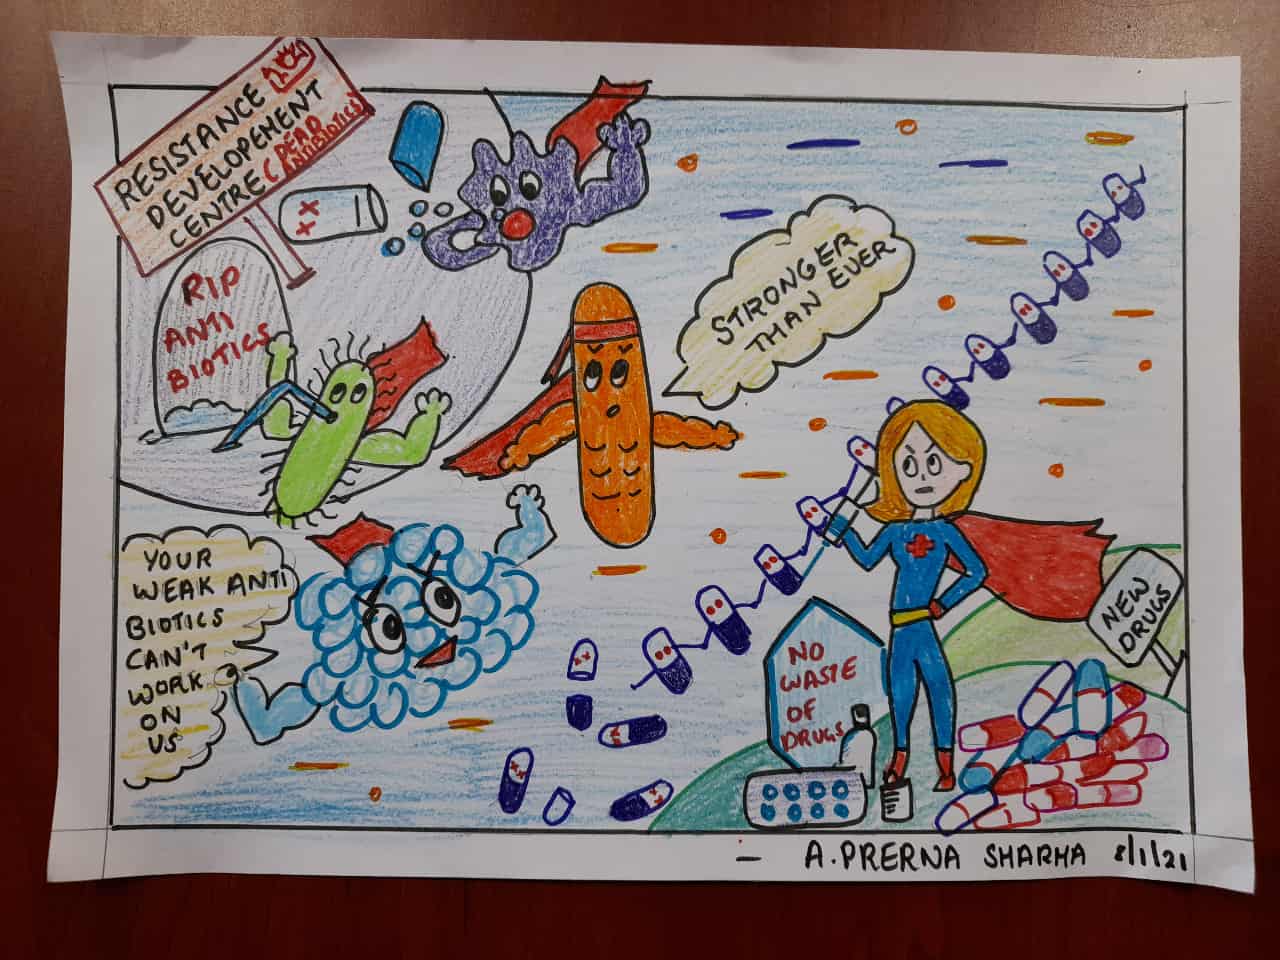 RESISTANCE
DEVELOPEMENT
CENTRE (DEAD
ANTIBIOTICS)
RIP
ANTI
BIOTICS
STRONGER
THAN EVER
YOUR
WEAK ANTI
BIOTICS
CAN'T
WORK
ON
US
NO
WASTE
OF
DRUGS
NEW
DRUGS
— A. PRERNA SHARMA 8/1/21